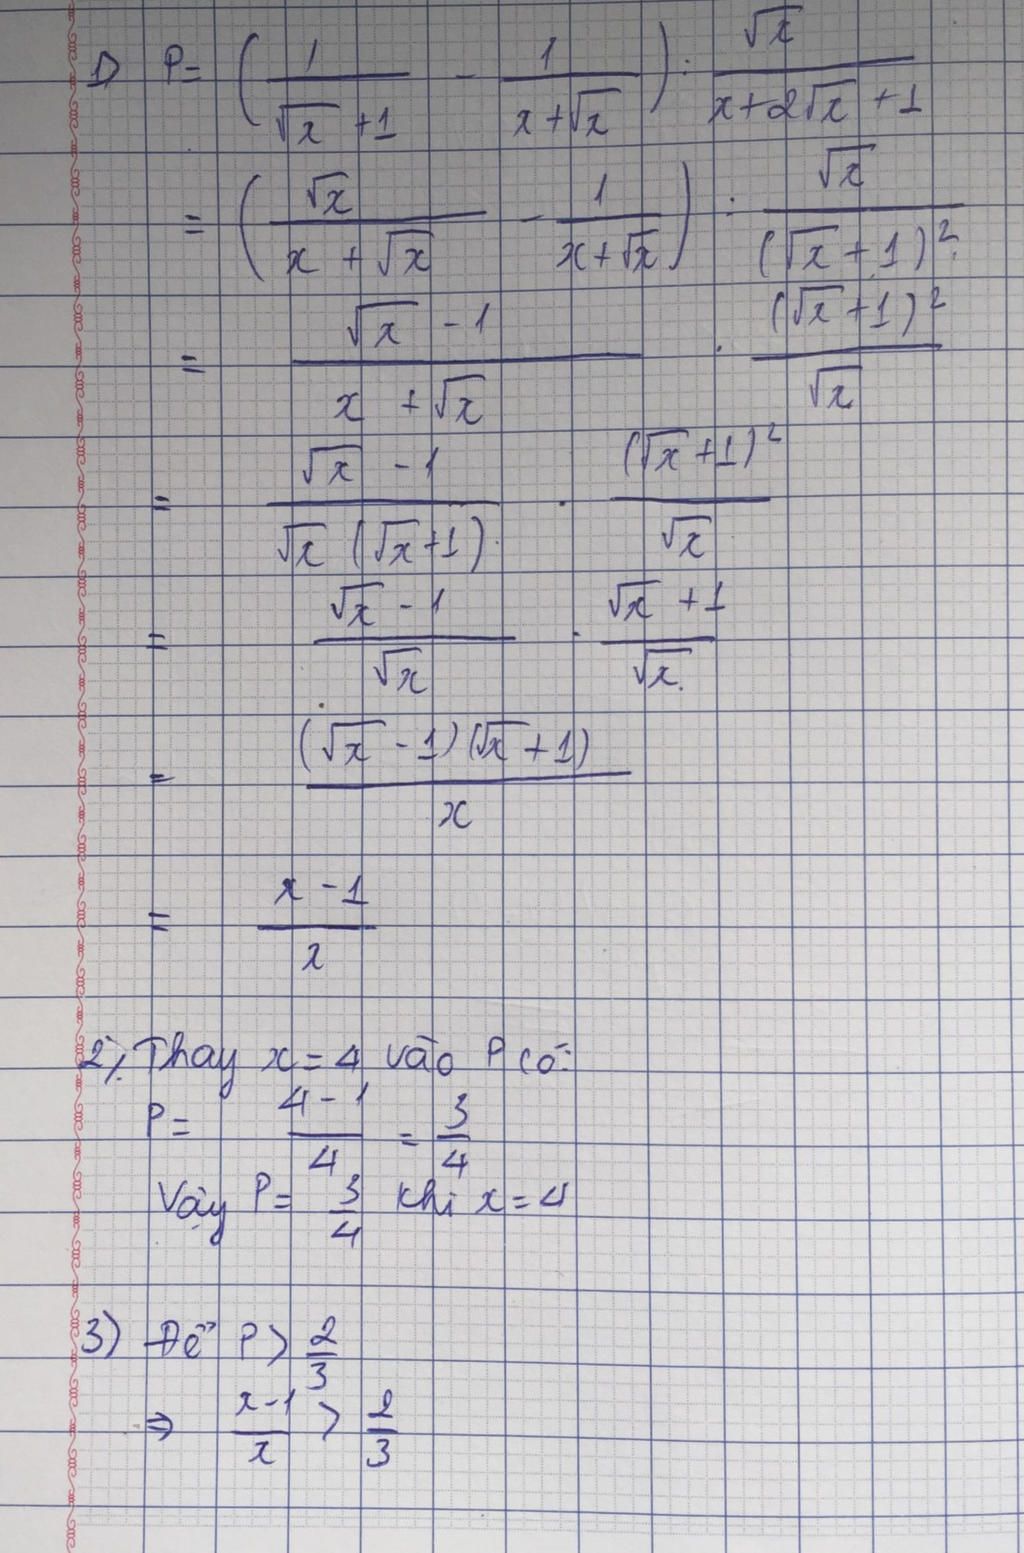 1) P = ( 1/(√x + 1) - 1/(x + √x) ) : √x/(x + 2√x + 1)
= ( √x/(x + √x) - 1/(x + √x) ) : √x/(√x + 1)²
= (√x - 1)/(x + √x) . (√x + 1)²/√x
= (√x - 1)/(√x (√x + 1)) . (√x + 1)²/√x
= (√x - 1)/√x . (√x + 1)/√x
= (√x - 1)(√x + 1)/x
= (x - 1)/x
2). Thay x = 4 vào P có:
P = (4 - 1)/4 = 3/4
Vậy P = 3/4 khi x = 4
3) Để P > 2/3
⇒ (x - 1)/x > 2/3